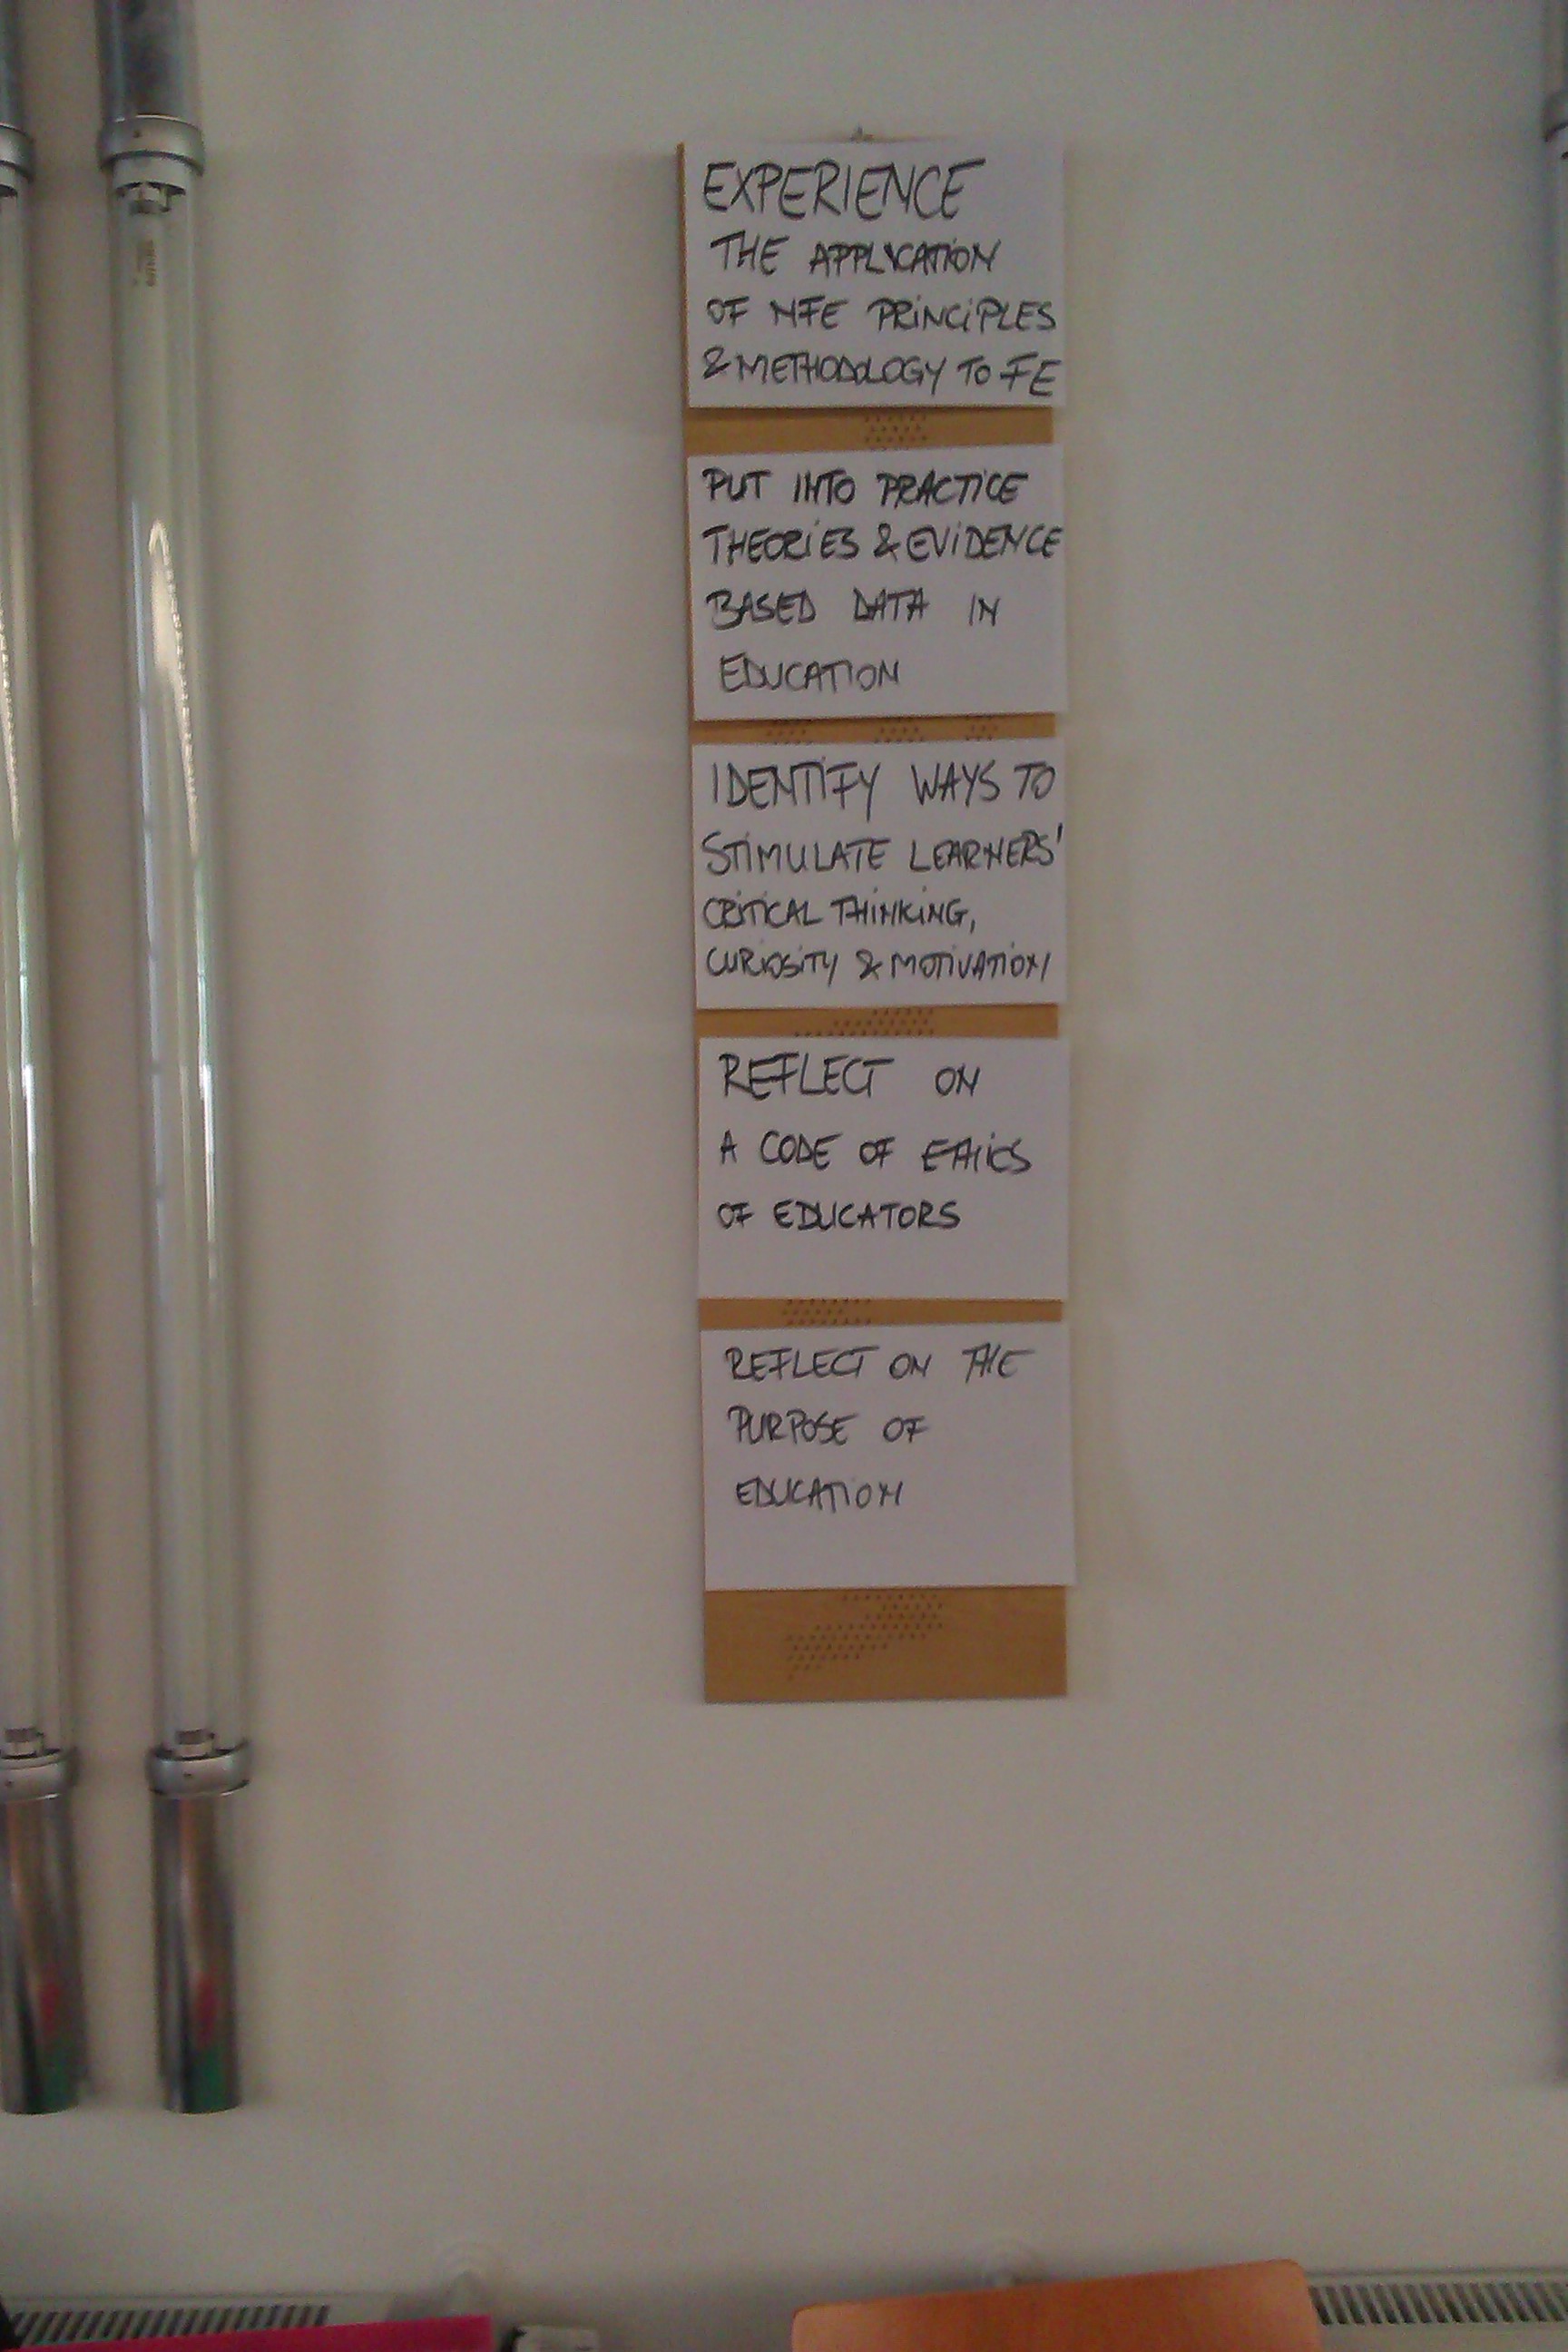 EXPERIENCE
THE APPLICATION
OF NFE PRINCIPLES
& METHODOLOGY TO FE
PUT INTO PRACTICE
THEORIES & EVIDENCE
BASED DATA IN
EDUCATION
IDENTIFY WAYS TO
STIMULATE LEARNERS'
CRITICAL THINKING,
CURIOSITY & MOTIVATION
REFLECT ON
A CODE OF ETHICS
OF EDUCATORS
REFLECT ON THE
PURPOSE OF
EDUCATION